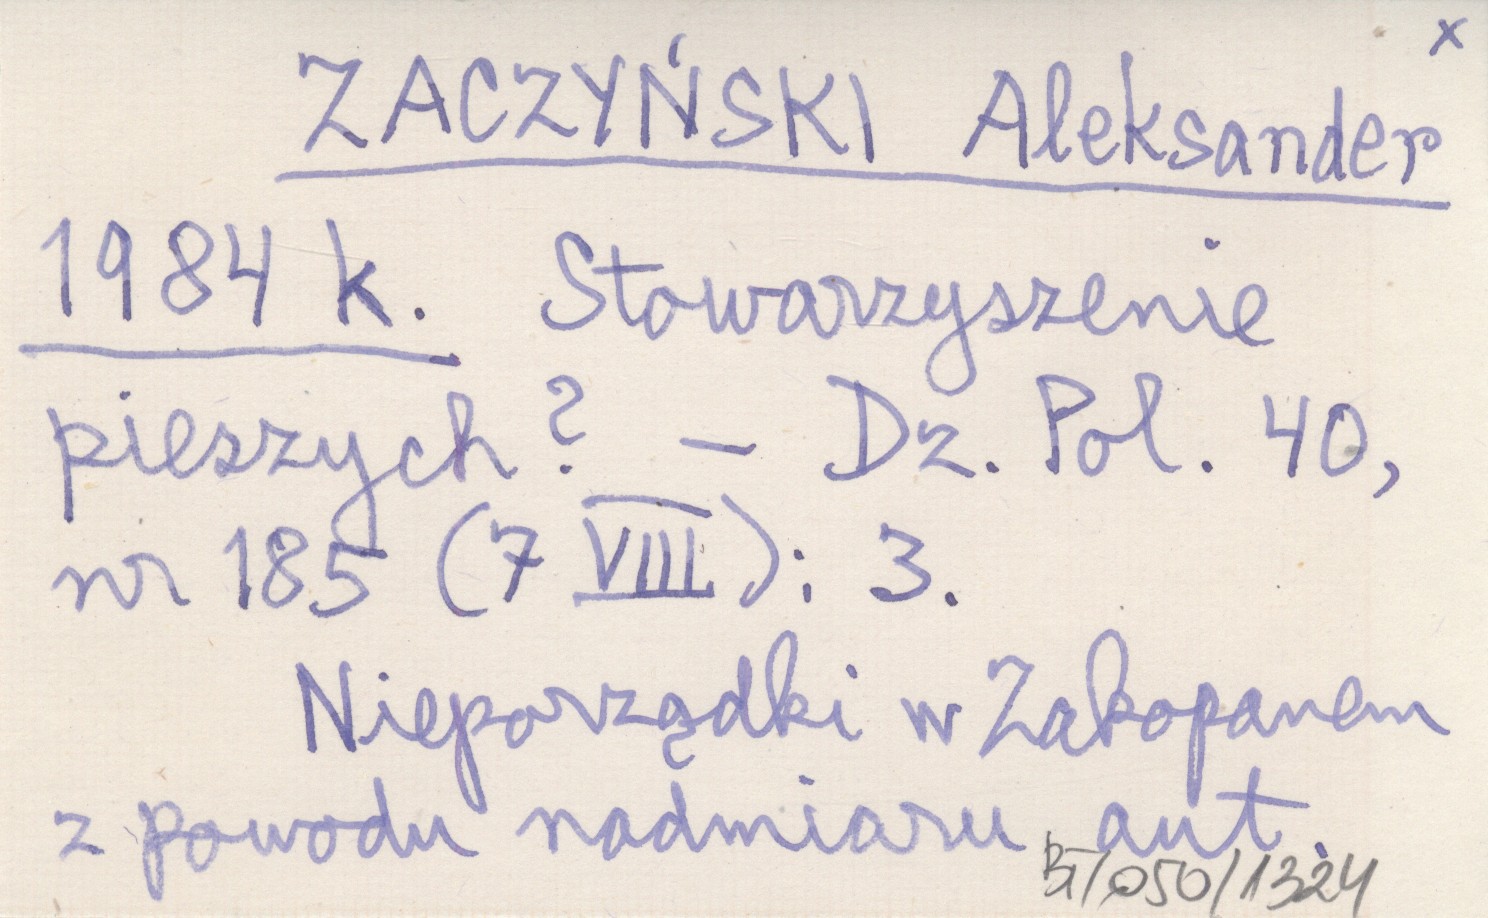 x
ZACZYŃSKI Aleksander
1984 k. Stowarzyszenie
pieszych? – Dz. Pol. 40,
nr 185 (7 VIII): 3.
Nieporządki w Zakopanem
z powodu nadmiaru aut.
BT/050/1324